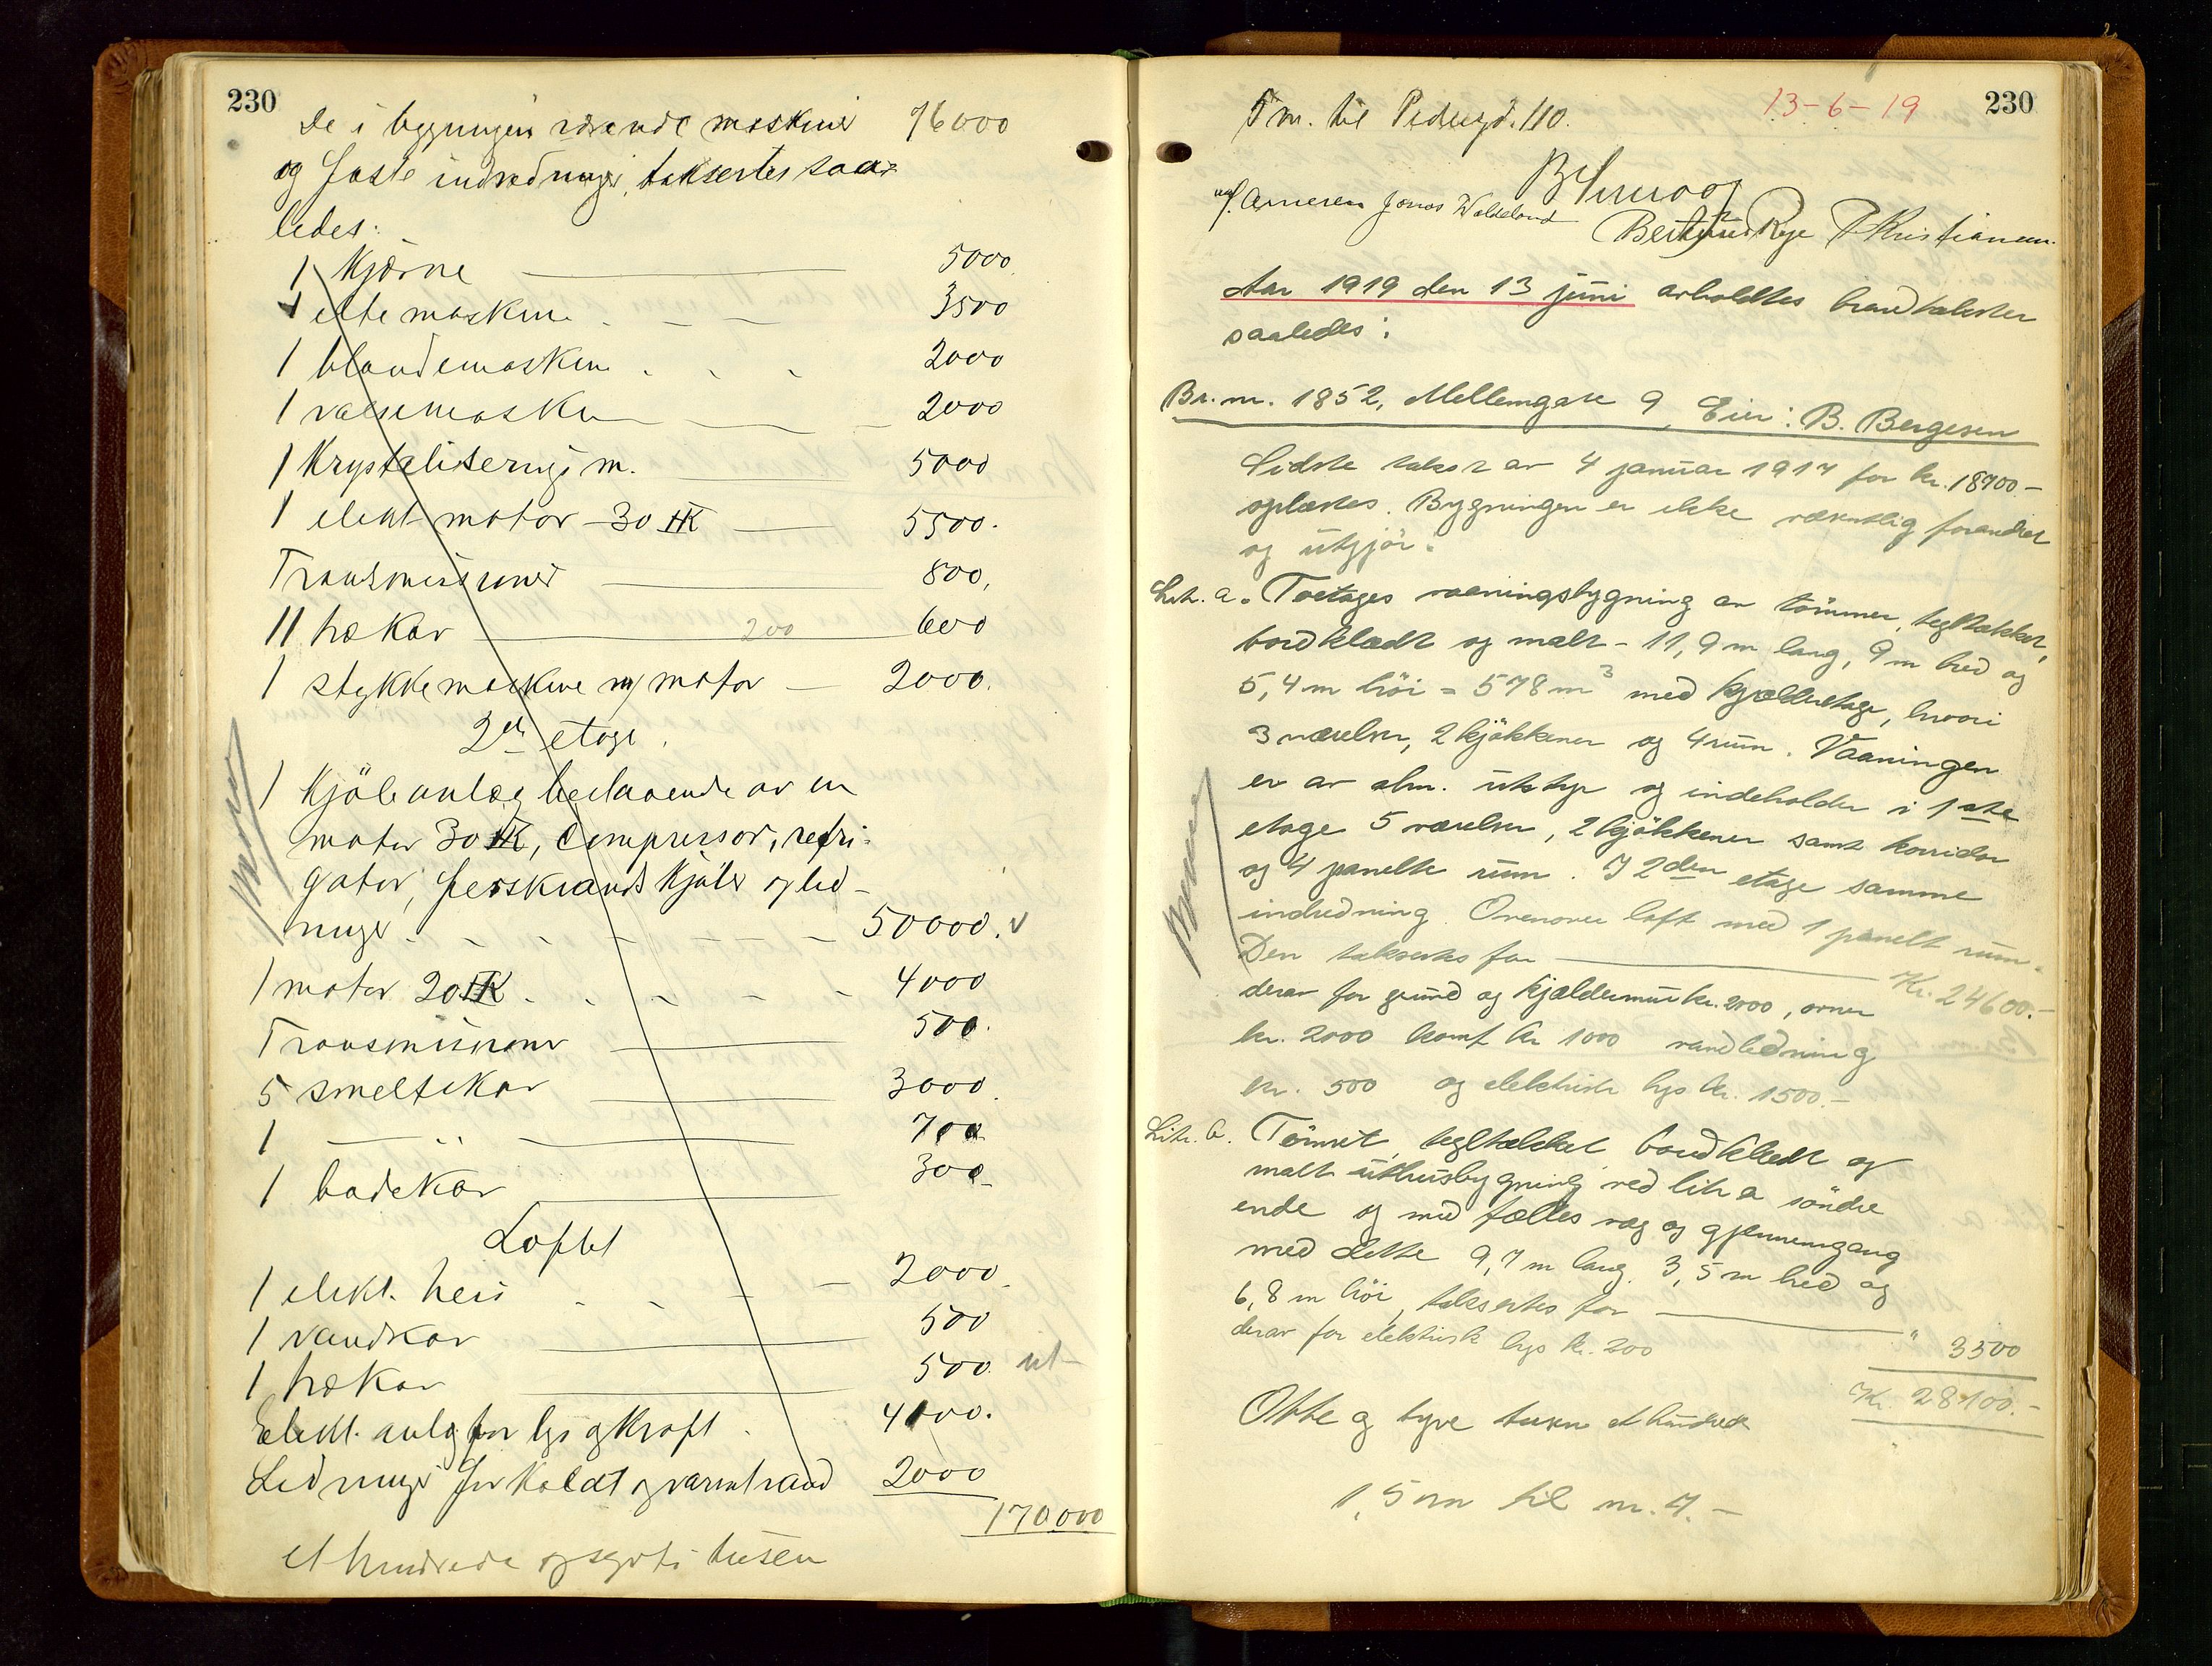 230
De i bygningen værende maskiner 76000
og faste indredninger, takseres saa-
ledes:
1 Kjærne 5000
1 eltemaskine 3500
1 blandemaskin 2000
1 valsemaskin 2000
1 Krystaliserings m. 5000
1 elekt. motor - 30 HK 5500.
Transmissioner 800,
11 trækar 200 600
1 stykkemaskine m/ motor 2000.
2den etage.
1 Kjøleanlæg bestaaende av en
motor 30 HK, Compressor, refri-
gator, ferskvands Kjøler og led-
ninger 50000. v
1 motor 20 HK 4000
Transmissioner 500.
5 smeltekar 3000.
1 — " — 700
1 badekar 300
Loftet
1 elekt. heis 2000.
1 vandkar 500
1 trækar 500. ut
Elekt. anlæg for lys og Kraft 4100.
Ledninger for Koldt og varmt vand 2000
170000
et hundrede og sytti tusen
230
13-6-19
5 m. til Pedersgd. 110.
Jonas Walseland
P Kristiansen
Aar 1919 den 13 juni avholdtes brandtakster
saaledes:
Br. nr. 1852, Mellemgate 9, Eier: B. Bergesen
Sidste takst av 4 januar 1917 for kr. 18700.-
oplæstes. Bygningen er ikke væsentlig forandret
og utgjør:
Litr. a. Toetages vaaningsbygning av tømmer, tegltækket,
bordklædt og malt - 11,9 m lang, 9 m bred og
5,4 m høi = 578 m³ med kjælderetage, hvori
3 værelser, 2 kjøkkener og 4 rum. Vaaningen
er av alm. utstyr og indeholder i 1ste
etage 5 værelser, 2 kjøkkener samt korridor
og 4 panelte rum. I 2den etage samme
indredning. Ovenover loft med 1 panelt rum.
Den takseres for Kr. 24600.-
derav for grund og kjældermur kr. 2000, ovner
kr. 2000 komf kr 1000 vandledning
kr. 500 og elektrisk lys kr. 1500.-
Litr. b. Tømret, tegltækket bordklædt og
malt uthusbygning ved litr a søndre
ende og med fælles væg og gjennemgang
med dette 9,7 m lang. 3,5 m bred og
6,8 m høi, takseres for " 3500
derav for elektrisk lys kr. 200
Kr. 28100.-
Otte og tyve tusen et hundrede
1,5 m til nr. 7.-